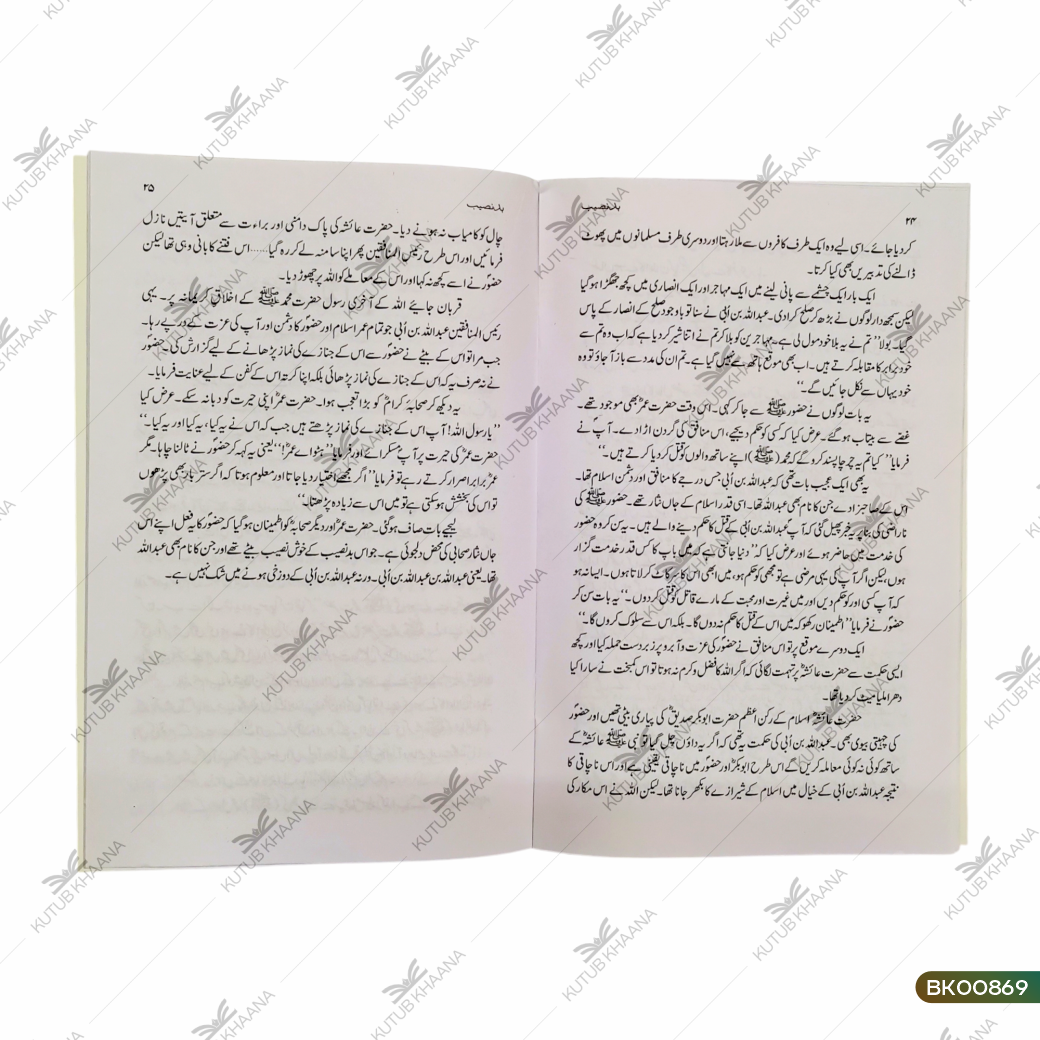 ۲۴
بدنصیب
کر دیا جائے۔ اسی لیے وہ ایک طرف کافروں سے ملا رہتا اور دوسری طرف مسلمانوں میں پھوٹ
ڈالنے کی تدبیریں بھی کیا کرتا۔
ایک بار ایک چشمے سے پانی لینے میں ایک مہاجر اور ایک انصاری میں کچھ جھگڑا ہو گیا
لیکن سمجھدار لوگوں نے بڑھ کر صلح کرا دی۔ عبداللہ بن اُبی نے سنا تو باوجود صلح کے انصار کے پاس
گیا۔ بولا ’’تم نے یہ بلا خود مول لی ہے۔ مہاجرین کو بلا کر تم نے اتنا شیر کر دیا ہے کہ اب وہ تم سے
خود برابر کا مقابلہ کرتے ہیں۔ اب بھی موقع ہاتھ سے نہیں گیا ہے۔ تم ان کی مدد سے باز آجاؤ تو وہ
خود یہاں سے نکل جائیں گے۔‘‘
یہ بات لوگوں نے حضور ﷺ سے جا کر کہی۔ اس وقت حضرت عمرؓ بھی موجود تھے۔
غصے سے بیتاب ہو گئے۔ عرض کیا کہ کسی کو حکم دیجیے، اس منافق کی گردن اڑا دے۔ آپؐ نے
فرمایا ’’کیا تم یہ چرچا پسند کرو گے کہ محمد (ﷺ) اپنے ساتھ والوں کو قتل کر دیا کرتے ہیں۔‘‘
یہ بھی ایک عجیب بات تھی کہ عبداللہ بن اُبی جس درجے کا منافق اور دشمن اسلام تھا۔
اس کے صاحبزادے جن کا نام بھی عبداللہ تھا۔ اسی قدر اسلام کے جاں نثار تھے۔ حضور ﷺ کی
ناراضی کی بنا پر یہ خبر پھیل گئی کہ آپؐ عبداللہ بن اُبی کے قتل کا حکم دینے والے ہیں۔ یہ سن کر وہ حضورؐ
کی خدمت میں حاضر ہوئے اور عرض کیا کہ ’’دنیا جانتی ہے کہ میں باپ کا کس قدر خدمت گزار
ہوں، لیکن اگر آپؐ کی یہی مرضی ہے تو مجھی کو حکم ہو، میں ابھی اس کا سر کاٹ کر لاتا ہوں۔ ایسا نہ ہو
کہ آپؐ کسی اور کو حکم دیں اور میں غیرت اور محبت کے مارے قاتل کو قتل کر دوں۔‘‘ یہ بات سن کر
حضورؐ نے فرمایا ’’اطمینان رکھو کہ میں اس کے قتل کا حکم نہ دوں گا۔ بلکہ اس سے سلوک کروں گا۔‘‘
ایک دوسرے موقع پر تو اس منافق نے حضورؐ کی عزت و آبرو پر زبردست حملہ کیا اور کچھ
ایسی حکمت سے حضرت عائشہؓ پر تہمت لگائی کہ اگر اللہ کا فضل و کرم نہ ہوتا تو اس کمبخت نے سارا کیا
دھرا ملیا میٹ کر دیا تھا۔
حضرت عائشہؓ اسلام کے رکن اعظم حضرت ابوبکر صدیقؓ کی پیاری بیٹی تھیں اور حضورؐ
کی چہیتی بیوی بھی۔ عبداللہ بن اُبی کی حکمت یہ تھی کہ اگر یہ داؤں چل گیا تو نبی ﷺ عائشہؓ کے
ساتھ کوئی نہ کوئی معاملہ کریں گے اس طرح ابوبکرؓ اور حضورؐ میں ناچاقی یقینی ہے اور اس ناچاقی کا
نتیجہ عبداللہ بن اُبی کے خیال میں اسلام کے شیرازے کا بکھر جانا تھا۔ لیکن اللہ نے اس مکار کی
بدنصیب
۲۵
چال کو کامیاب نہ ہونے دیا۔ حضرت عائشہؓ کی پاک دامنی اور براءت سے متعلق آیتیں نازل
فرمائیں اور اس طرح رئیس المنافقین پھر اپنا سا منہ لے کر رہ گیا......اس فتنے کا بانی وہی تھا لیکن
حضورؐ نے اسے کچھ نہ کہا اور اس کے معاملے کو اللہ پر چھوڑ دیا۔
قربان جائیے اللہ کے آخری رسول حضرت محمد ﷺ کے اخلاق کریمانہ پر۔ یہی
رئیس المنافقین عبداللہ بن اُبی جو تمام عمر اسلام اور حضورؐ کا دشمن اور آپ کی عزت کے درپے رہا۔
جب مرا تو اس کے بیٹے نے حضورؐ سے اس کے جنازے کی نماز پڑھانے کے لیے گزارش کی۔ حضورؐ
نے نہ صرف یہ کہ اس کے جنازے کی نماز پڑھائی بلکہ اپنا کرتہ اس کے کفن کے لیے عنایت فرمایا۔
یہ دیکھ کر صحابہ کرامؓ کو بڑا تعجب ہوا۔ حضرت عمرؓ اپنی حیرت کو دبا نہ سکے۔ عرض کیا
’’یارسول اللہ! آپ اس کے جنازے کی نماز پڑھتے ہیں جب کہ اس نے یہ کیا، یہ کیا اور یہ کیا۔‘‘
حضرت عمرؓ کی حیرت پر آپؐ مسکرائے اور فرمایا ’’ہٹو اے عمرؓ!‘‘ یعنی یہ کہہ کر حضورؐ نے ٹالنا چاہا۔ مگر
عمرؓ برابر اصرار کرتے رہے تو فرمایا ’’اگر مجھے اختیار دیا جاتا اور معلوم ہوتا کہ اگر ستر بار بھی پڑھوں
تو اس کی بخشش ہو سکتی ہے تو میں اس سے زیادہ پڑھتا۔‘‘
لیجیے بات صاف ہو گئی۔ حضرت عمرؓ اور دیگر صحابہؓ کو اطمینان ہو گیا کہ حضورؐ کا یہ فعل اپنے اس
جاں نثار صحابی کی محض دلجوئی ہے۔ جو اس بدنصیب کے خوش نصیب بیٹے تھے اور جن کا نام بھی عبداللہ
تھا۔ یعنی عبداللہ بن عبداللہ بن اُبی۔ ورنہ عبداللہ بن اُبی کے دوزخی ہونے میں شک نہیں ہے۔
KUTUB KHAANA
BK00869